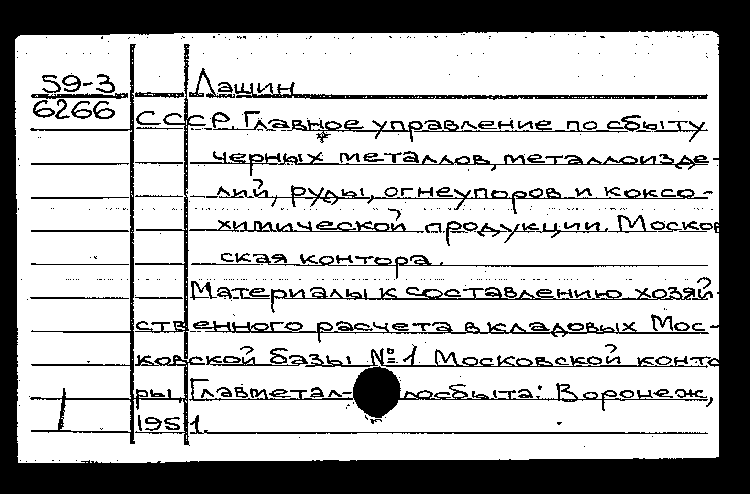 59-3 Лашин
6266 СССР. Главное управление по сбыту
черных металлов, металлоизде-
лий, руды, огнеупоров и коксо-
химической продукции. Москов
ская контора.
Материалы к составлению хозяй
ственного расчета в кладовых Мос-
ковской базы №1 Московской конто
ры, Главметал-лосбыта: Воронеж,
1951.